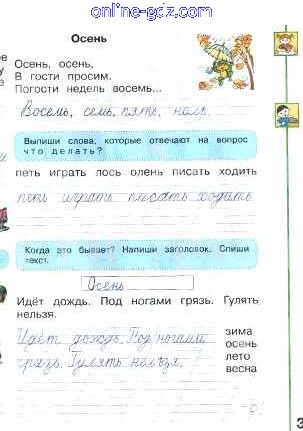 online-gdz.com
Осень
Осень, осень,
В гости просим.
Погости недель восемь...
Восемь, семь, пять, ноль.
Выпиши слова, которые отвечают на вопрос
что делать?
петь играть лось олень писать ходить
петь играть писать ходить
Когда это бывает? Напиши заголовок. Спиши
текст.
Осень
Идёт дождь. Под ногами грязь. Гулять
нельзя.
Идёт дождь. Под ногами
грязь. Гулять нельзя.
зима
осень
лето
весна
3